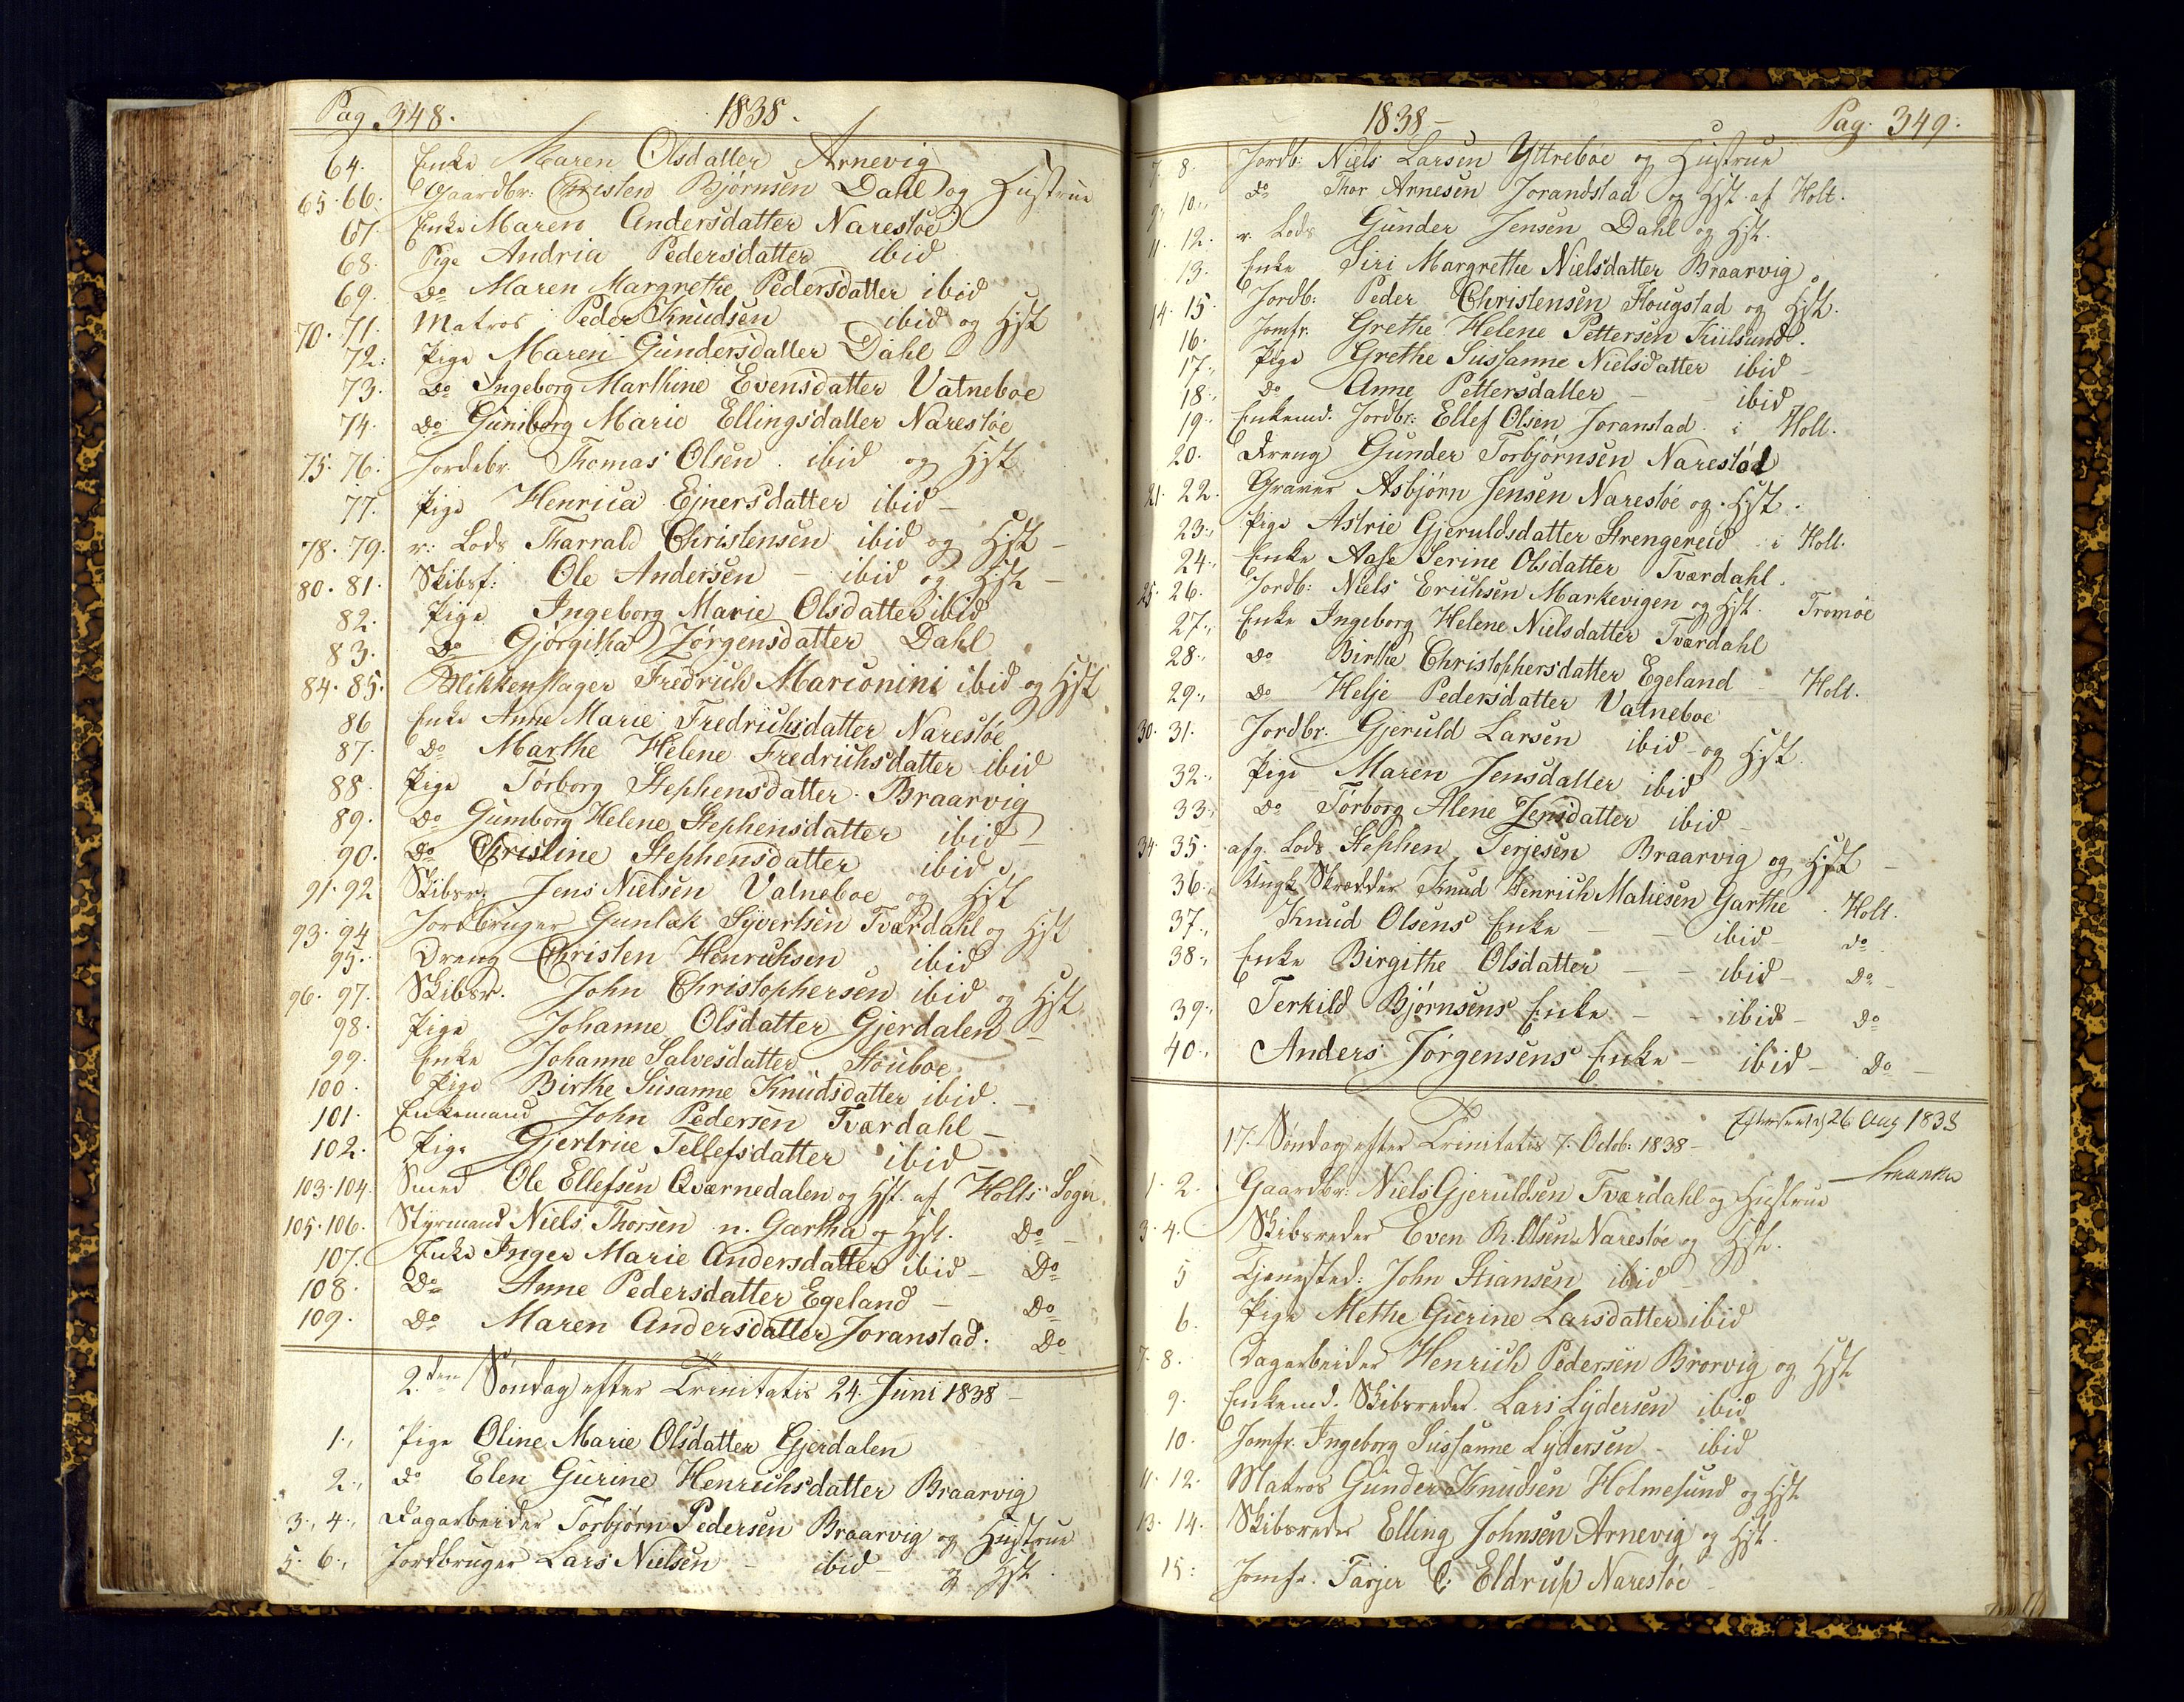 Pag. 348. 1838.
64. Enke Maren Olsdatter Arnevig
65. 66. Gaardbr: Christen Bjørnsen Dahl og Hustrue
67. Enke Maren Andersdatter Narestøe
68. Pige Andria Pedersdatter ibid
69. Do Maren Margrethe Pedersdatter ibid
70. 71. Matros Peder Knudsen ibid og Hst
72. Pige Maren Gundersdatter Dahl
73. Do Ingeborg Marthine Evensdatter Vatneboe
74. Do Gunborg Marie Ellingsdatter Narestøe
75. 76. Jordebr. Thomas Olsen ibid og Hst
77. Pige Henrica Ejnersdatter ibid –
78. 79. r: Lods Tharrald Christensen ibid og Hst –
80. 81. Skibsf: Ole Andersen – ibid og Hst –
82. Pige Ingeborg Marie Olsdatter ibid
83. Do Gjørgitha Jørgensdatter Dahl
84. 85. Blikkenslager Fredrich Marconini ibid og Hst
86 Enke Anne Marie Fredrichsdatter Narestøe
87. Do Marthe Helene Fredrichsdatter ibid
88. Pige Tørborg Stephensdatter Braarvig
89. Do Gumborg Helene Stephensdatter ibid –
90. Do Christine Stephensdatter ibid
91. 92 Skibsr. Jens Nielsen Vatneboe og Hst
93. 94 Jordbruger Gunlak Syvertsen Tværdahl og Hst
95. Dreng Christen Henrichsen ibid
96. 97. Skibsr. John Christophersen ibid og Hst
98. Pige Johanne Olsdatter Gjerdalen –
99. Enke Johanne Salvesdatter Stouboe
100. Pige Birthe Susanne Knudsdatter ibid. –
101. Enkemand John Pedersen Tværdahl –
102. Pige Gjertrue Tellefsdatter ibid –
103. 104. Smed Ole Ellefsen Qværnedalen og Hst. af Holts Sogn
105. 106. Styrmand Niels Thorsen n. Gartha og Hst. Do –
107. Enke Inger Marie Andersdatter ibid – Do
108. Do Anne Pedersdatter Egeland – Do
109. Do Maren Andersdatter Joranstad. Do
2den Søndag efter Trinitatis 24. Juni 1838 –
1., Pige Oline Marie Olsdatter Gjerdalen
2., do Elen Gurine Henrichsdatter Braarvig
3., 4., Dagarbeider Torbjørn Pedersen Braarvig og Hustrue
5. 6., Jordbruger Lars Nielsen – ibid – og Hst.
1838 – Pag. 349.
7. 8. Jordb: Niels Larsen Yttreboe og Hustrue
9. 10., do Thor Arnesen Jorandstad og Hst. af Holt.
11. 12. r. Lods Gunder Jensen Dahl og Hst.
13. Enke Siri Margrethe Nielsdatter Braarvig
14. 15. Jordb: Peder Christensen Hougstad og Hst.
16. Jomfr. Grethe Helene Pettersen Kiilsund.
17., Pige Grethe Sussanne Nielsdatter ibid –
18., Do Anne Pettersdatter – ibid
19., Enkemd. Jordbr: Ellef Olsen Joranstad i Holt.
20. Dreng Gunder Torbjørnsen Narestød
21. 22. Graver Asbjørn Jensen Narestøe og Hst.
23., Pige Astrie Gjeruldsdatter Strengereid i Holt.
24., Enke Aase Serine Olsdatter Tværdahl.
25. 26. Jordb: Niels Erichsen Markevigen og Hst. Tromøe
27., Enke Ingeborg Helene Nielsdatter Tværdahl
28., do Birthe Christophersdatter Egeland – Holt.
29., Do Helje Pedersdatter Vatneboe
30. 31. Jordbr. Gjeruld Larsen ibid og Hst.
32., Pige Maren Jensdatter ibid
33., Do Tørborg Alene Jensdatter ibid –
34. 35. afg. Lods Stephen Terjesen Braarvig og Hst –
36., Ungk. Skrædder Knud Henrich Matiesen Garthe Holt.
37., Knud Olsens Enke – – ibid – do
38., Enke Birgithe Olsdatter – – ibid – Do –
39., Terkild Bjørnsens Enke – – ibid – Do
40., Anders Jørgensens Enke – ibid – Do –
Efterseet 26 Aug 1838
17. Søndag efter Trinitatis 7. Octob: 1838 –
1. 2. Gaardbr: Niels Gjeruldsen Tværdahl og Hustrue
3. 4. Skibsreder Even Th. Olsen Narestøe og Hst.
5 Tjenested: John Stiansen ibid –
6. Pige Methe Gurine Larsdatter ibid
7. 8. Dagarbeider Henrich Pedersen Brorvig og Hst
9. Enkemd. Skibsreder Lars Lydersen ibid
10. Jomfr. Ingeborg Sussanne Lydersen – ibid
11. 12. Matros Gunder Knudsen Holmesund og Hst
13. 14. Skibsreder Elling Johnsen Arnevig og Hst.
15: Jomfr. Tarjer C. Eldrup Narestøe –